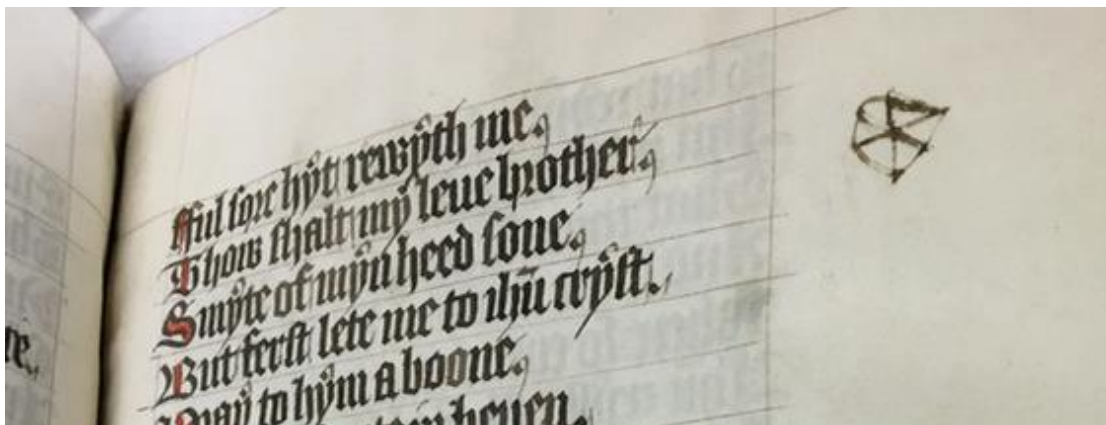 re.
fful sore hyt rewyth me.
Thow shalt my leue brother.
Smyte of myn heed sone.
But ferst lete me to ihū cryst.
Pray to hym a boone.
heuen.